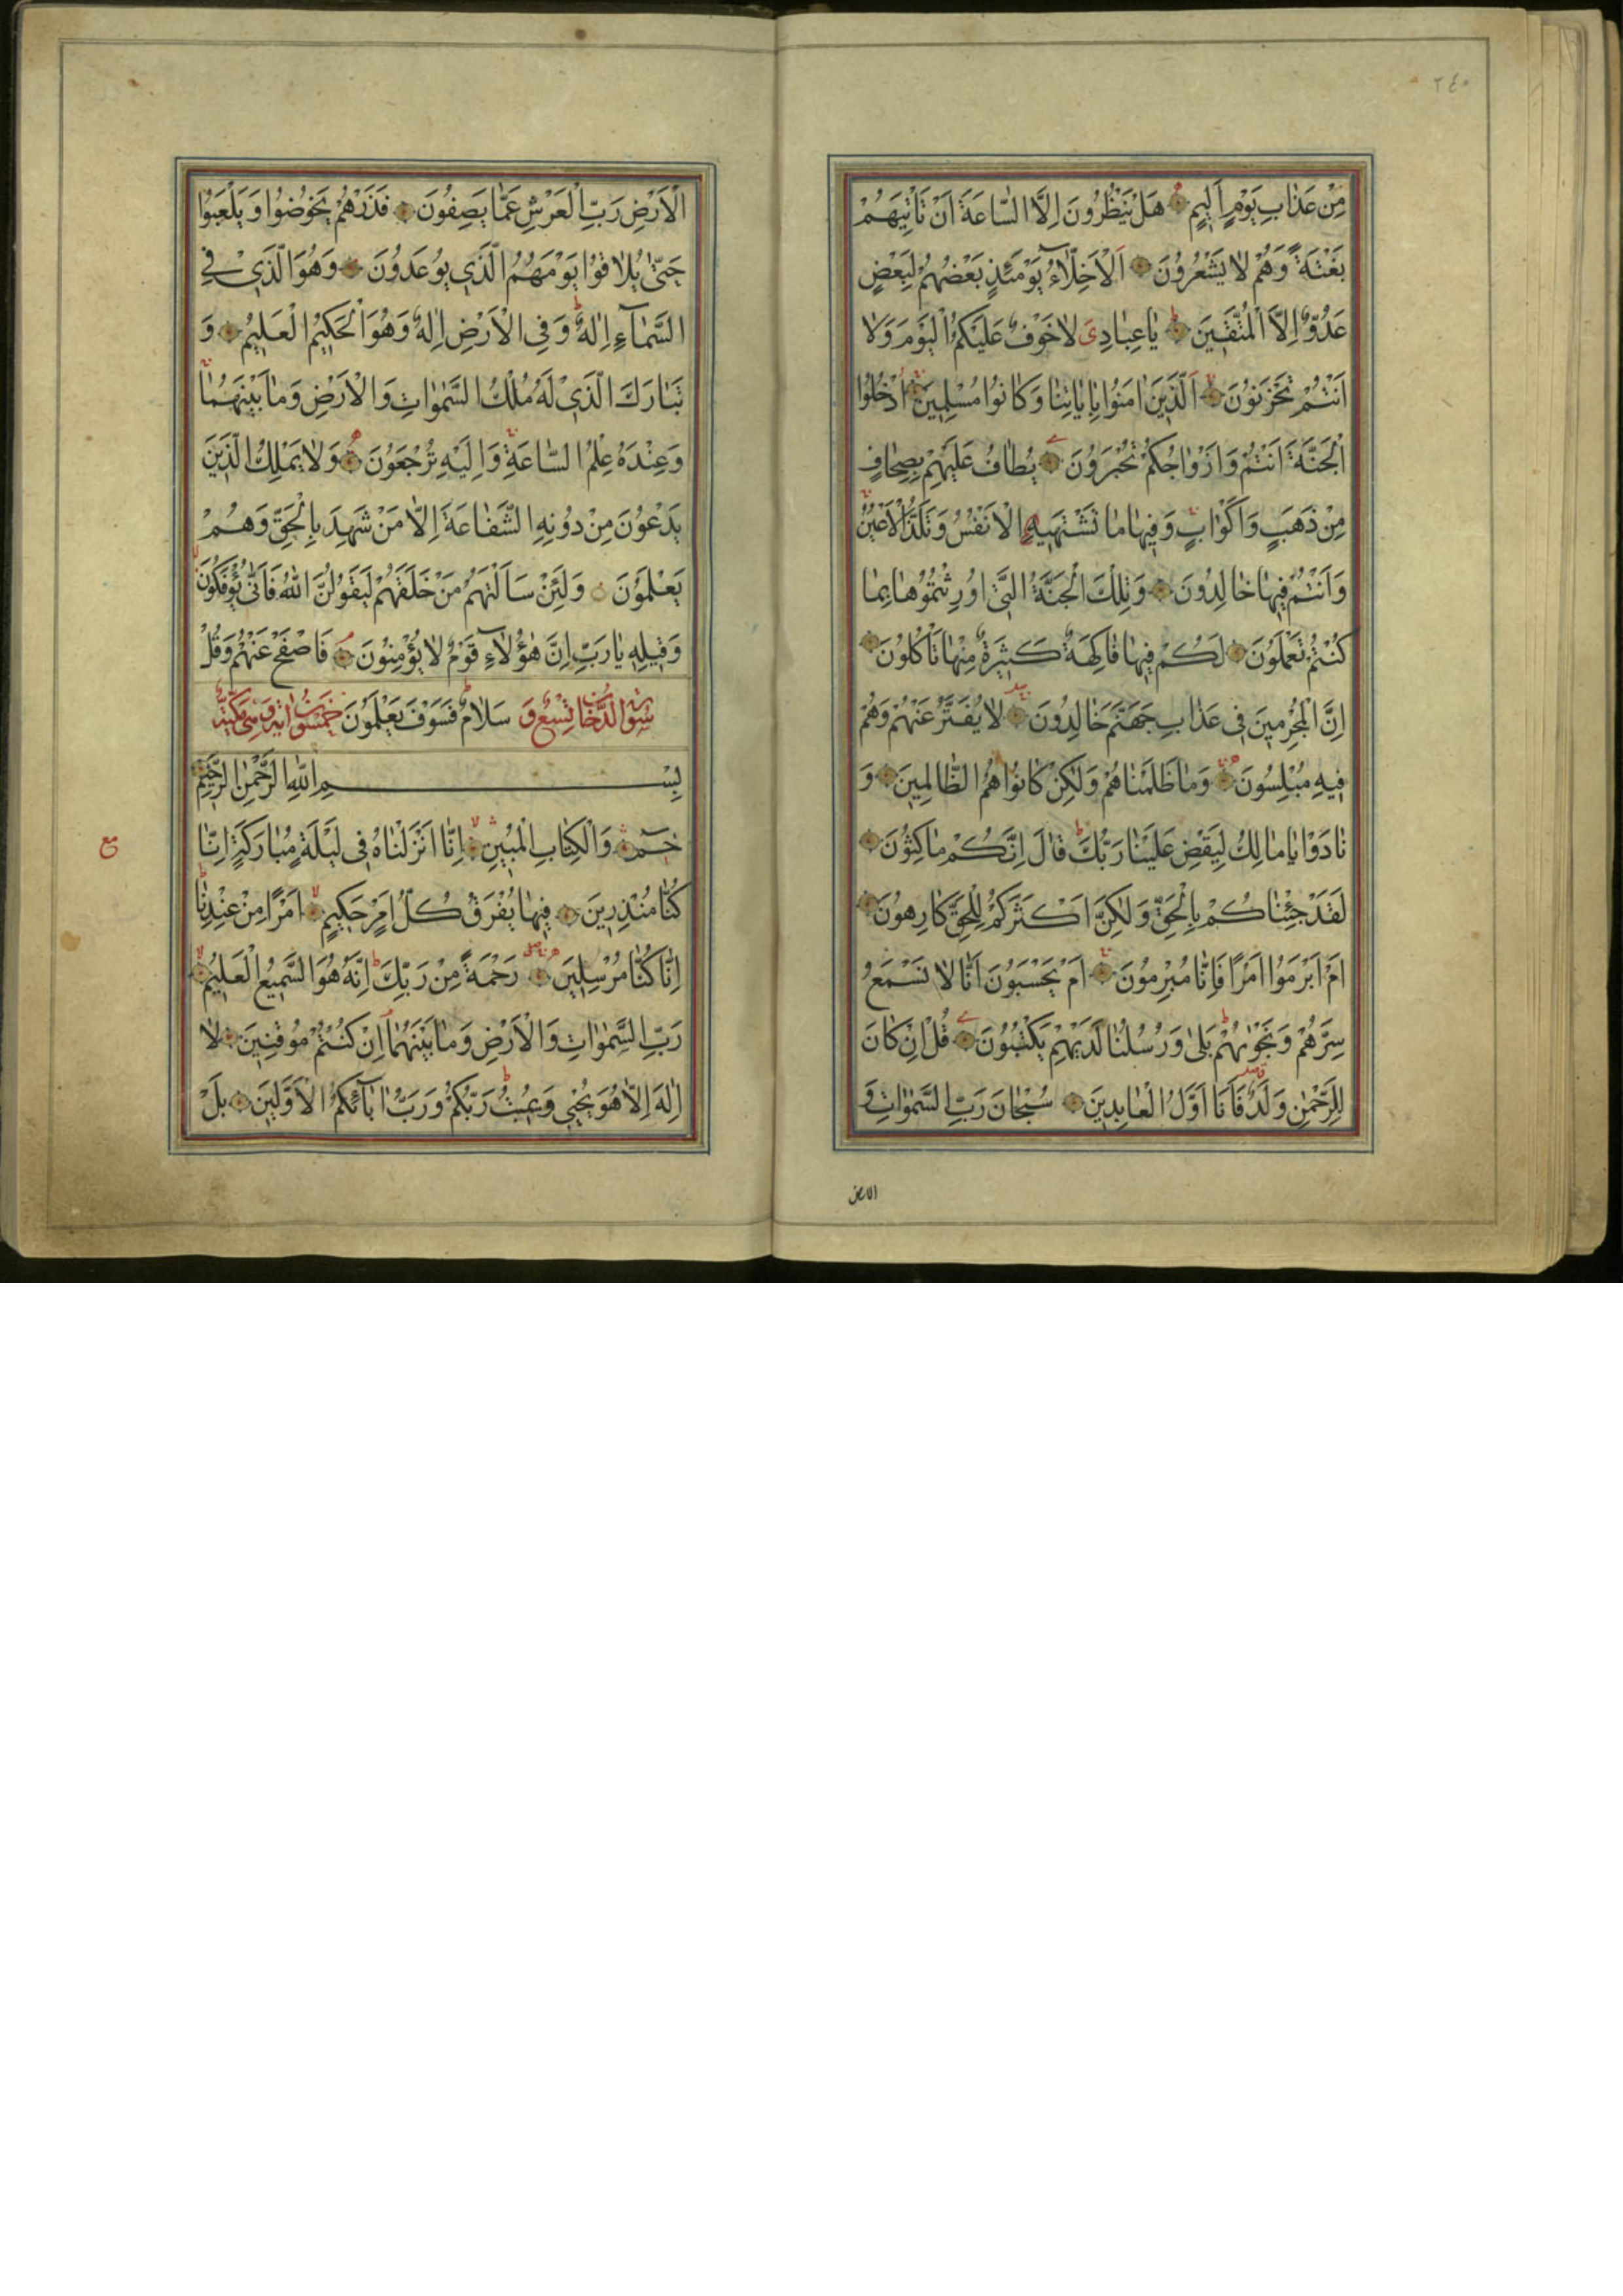 ٢٤٠
مِنْ عَذَابِ يَوْمٍ اَلِيمٍ هَلْ يَنْظُرُونَ اِلَّا السَّاعَةَ اَنْ تَأْتِيَهُمْ
بَغْتَةً وَهُمْ لَا يَشْعُرُونَ اَلْاَخِلَّاءُ يَوْمَئِذٍ بَعْضُهُمْ لِبَعْضٍ
عَدُوٌّ اِلَّا الْمُتَّقِينَ يَا عِبَادِىَ لَا خَوْفٌ عَلَيْكُمُ الْيَوْمَ وَلَا
اَنْتُمْ تَحْزَنُونَ اَلَّذِينَ اٰمَنُوا بِاٰيَاتِنَا وَكَانُوا مُسْلِمِينَ اُدْخُلُوا
الْجَنَّةَ اَنْتُمْ وَاَزْوَاجُكُمْ تُحْبَرُونَ يُطَافُ عَلَيْهِمْ بِصِحَافٍ
مِنْ ذَهَبٍ وَاَكْوَابٍ وَفِيهَا مَا تَشْتَهِيهِ الْاَنْفُسُ وَتَلَذُّ الْاَعْيُنُ
وَاَنْتُمْ فِيهَا خَالِدُونَ وَتِلْكَ الْجَنَّةُ الَّتِى اُورِثْتُمُوهَا بِمَا
كُنْتُمْ تَعْمَلُونَ لَكُمْ فِيهَا فَاكِهَةٌ كَثِيرَةٌ مِنْهَا تَأْكُلُونَ
اِنَّ الْمُجْرِمِينَ فِى عَذَابِ جَهَنَّمَ خَالِدُونَ لَا يُفَتَّرُ عَنْهُمْ وَهُمْ
فِيهِ مُبْلِسُونَ وَمَا ظَلَمْنَاهُمْ وَلٰكِنْ كَانُوا هُمُ الظَّالِمِينَ وَ
نَادَوْا يَا مَالِكُ لِيَقْضِ عَلَيْنَا رَبُّكَ قَالَ اِنَّكُمْ مَاكِثُونَ
لَقَدْ جِئْنَاكُمْ بِالْحَقِّ وَلٰكِنَّ اَكْثَرَكُمْ لِلْحَقِّ كَارِهُونَ
اَمْ اَبْرَمُوا اَمْرًا فَاِنَّا مُبْرِمُونَ اَمْ يَحْسَبُونَ اَنَّا لَا نَسْمَعُ
سِرَّهُمْ وَنَجْوٰيهُمْ بَلٰى وَرُسُلُنَا لَدَيْهِمْ يَكْتُبُونَ قُلْ اِنْ كَانَ
لِلرَّحْمٰنِ وَلَدٌ فَاَنَا اَوَّلُ الْعَابِدِينَ سُبْحَانَ رَبِّ السَّمٰوَاتِ وَ
الارض
الْاَرْضِ رَبِّ الْعَرْشِ عَمَّا يَصِفُونَ فَذَرْهُمْ يَخُوضُوا وَيَلْعَبُوا
حَتّٰى يُلَاقُوا يَوْمَهُمُ الَّذِى يُوعَدُونَ وَهُوَ الَّذِى فِى
السَّمَآءِ اِلٰهٌ وَفِى الْاَرْضِ اِلٰهٌ وَهُوَ الْحَكِيمُ الْعَلِيمُ وَ
تَبَارَكَ الَّذِى لَهُ مُلْكُ السَّمٰوَاتِ وَالْاَرْضِ وَمَا بَيْنَهُمَا
وَعِنْدَهُ عِلْمُ السَّاعَةِ وَاِلَيْهِ تُرْجَعُونَ وَلَا يَمْلِكُ الَّذِينَ
يَدْعُونَ مِنْ دُونِهِ الشَّفَاعَةَ اِلَّا مَنْ شَهِدَ بِالْحَقِّ وَهُمْ
يَعْلَمُونَ وَلَئِنْ سَاَلْتَهُمْ مَنْ خَلَقَهُمْ لَيَقُولُنَّ اللّٰهُ فَاَنّٰى يُؤْفَكُونَ
وَقِيلِهِ يَا رَبِّ اِنَّ هٰؤُلَآءِ قَوْمٌ لَا يُؤْمِنُونَ فَاصْفَحْ عَنْهُمْ وَقُلْ
سُورَةُ الدُّخَانِ تِسْعٌ وَ سَلَامٌ فَسَوْفَ يَعْلَمُونَ خَمْسُونَ اٰيَة وهى مَكِّيَّةٌ
بِسْمِ اللّٰهِ الرَّحْمٰنِ الرَّحِيمِ
حٰمٓ وَالْكِتَابِ الْمُبِينِ اِنَّا اَنْزَلْنَاهُ فِى لَيْلَةٍ مُبَارَكَةٍ اِنَّا
ع
كُنَّا مُنْذِرِينَ فِيهَا يُفْرَقُ كُلُّ اَمْرٍ حَكِيمٍ اَمْرًا مِنْ عِنْدِنَا
اِنَّا كُنَّا مُرْسِلِينَ رَحْمَةً مِنْ رَبِّكَ اِنَّهُ هُوَ السَّمِيعُ الْعَلِيمُ
رَبِّ السَّمٰوَاتِ وَالْاَرْضِ وَمَا بَيْنَهُمَا اِنْ كُنْتُمْ مُوقِنِينَ لَا
اِلٰهَ اِلَّا هُوَ يُحْيِى وَيُمِيتُ رَبُّكُمْ وَرَبُّ اٰبَآئِكُمُ الْاَوَّلِينَ بَلْ